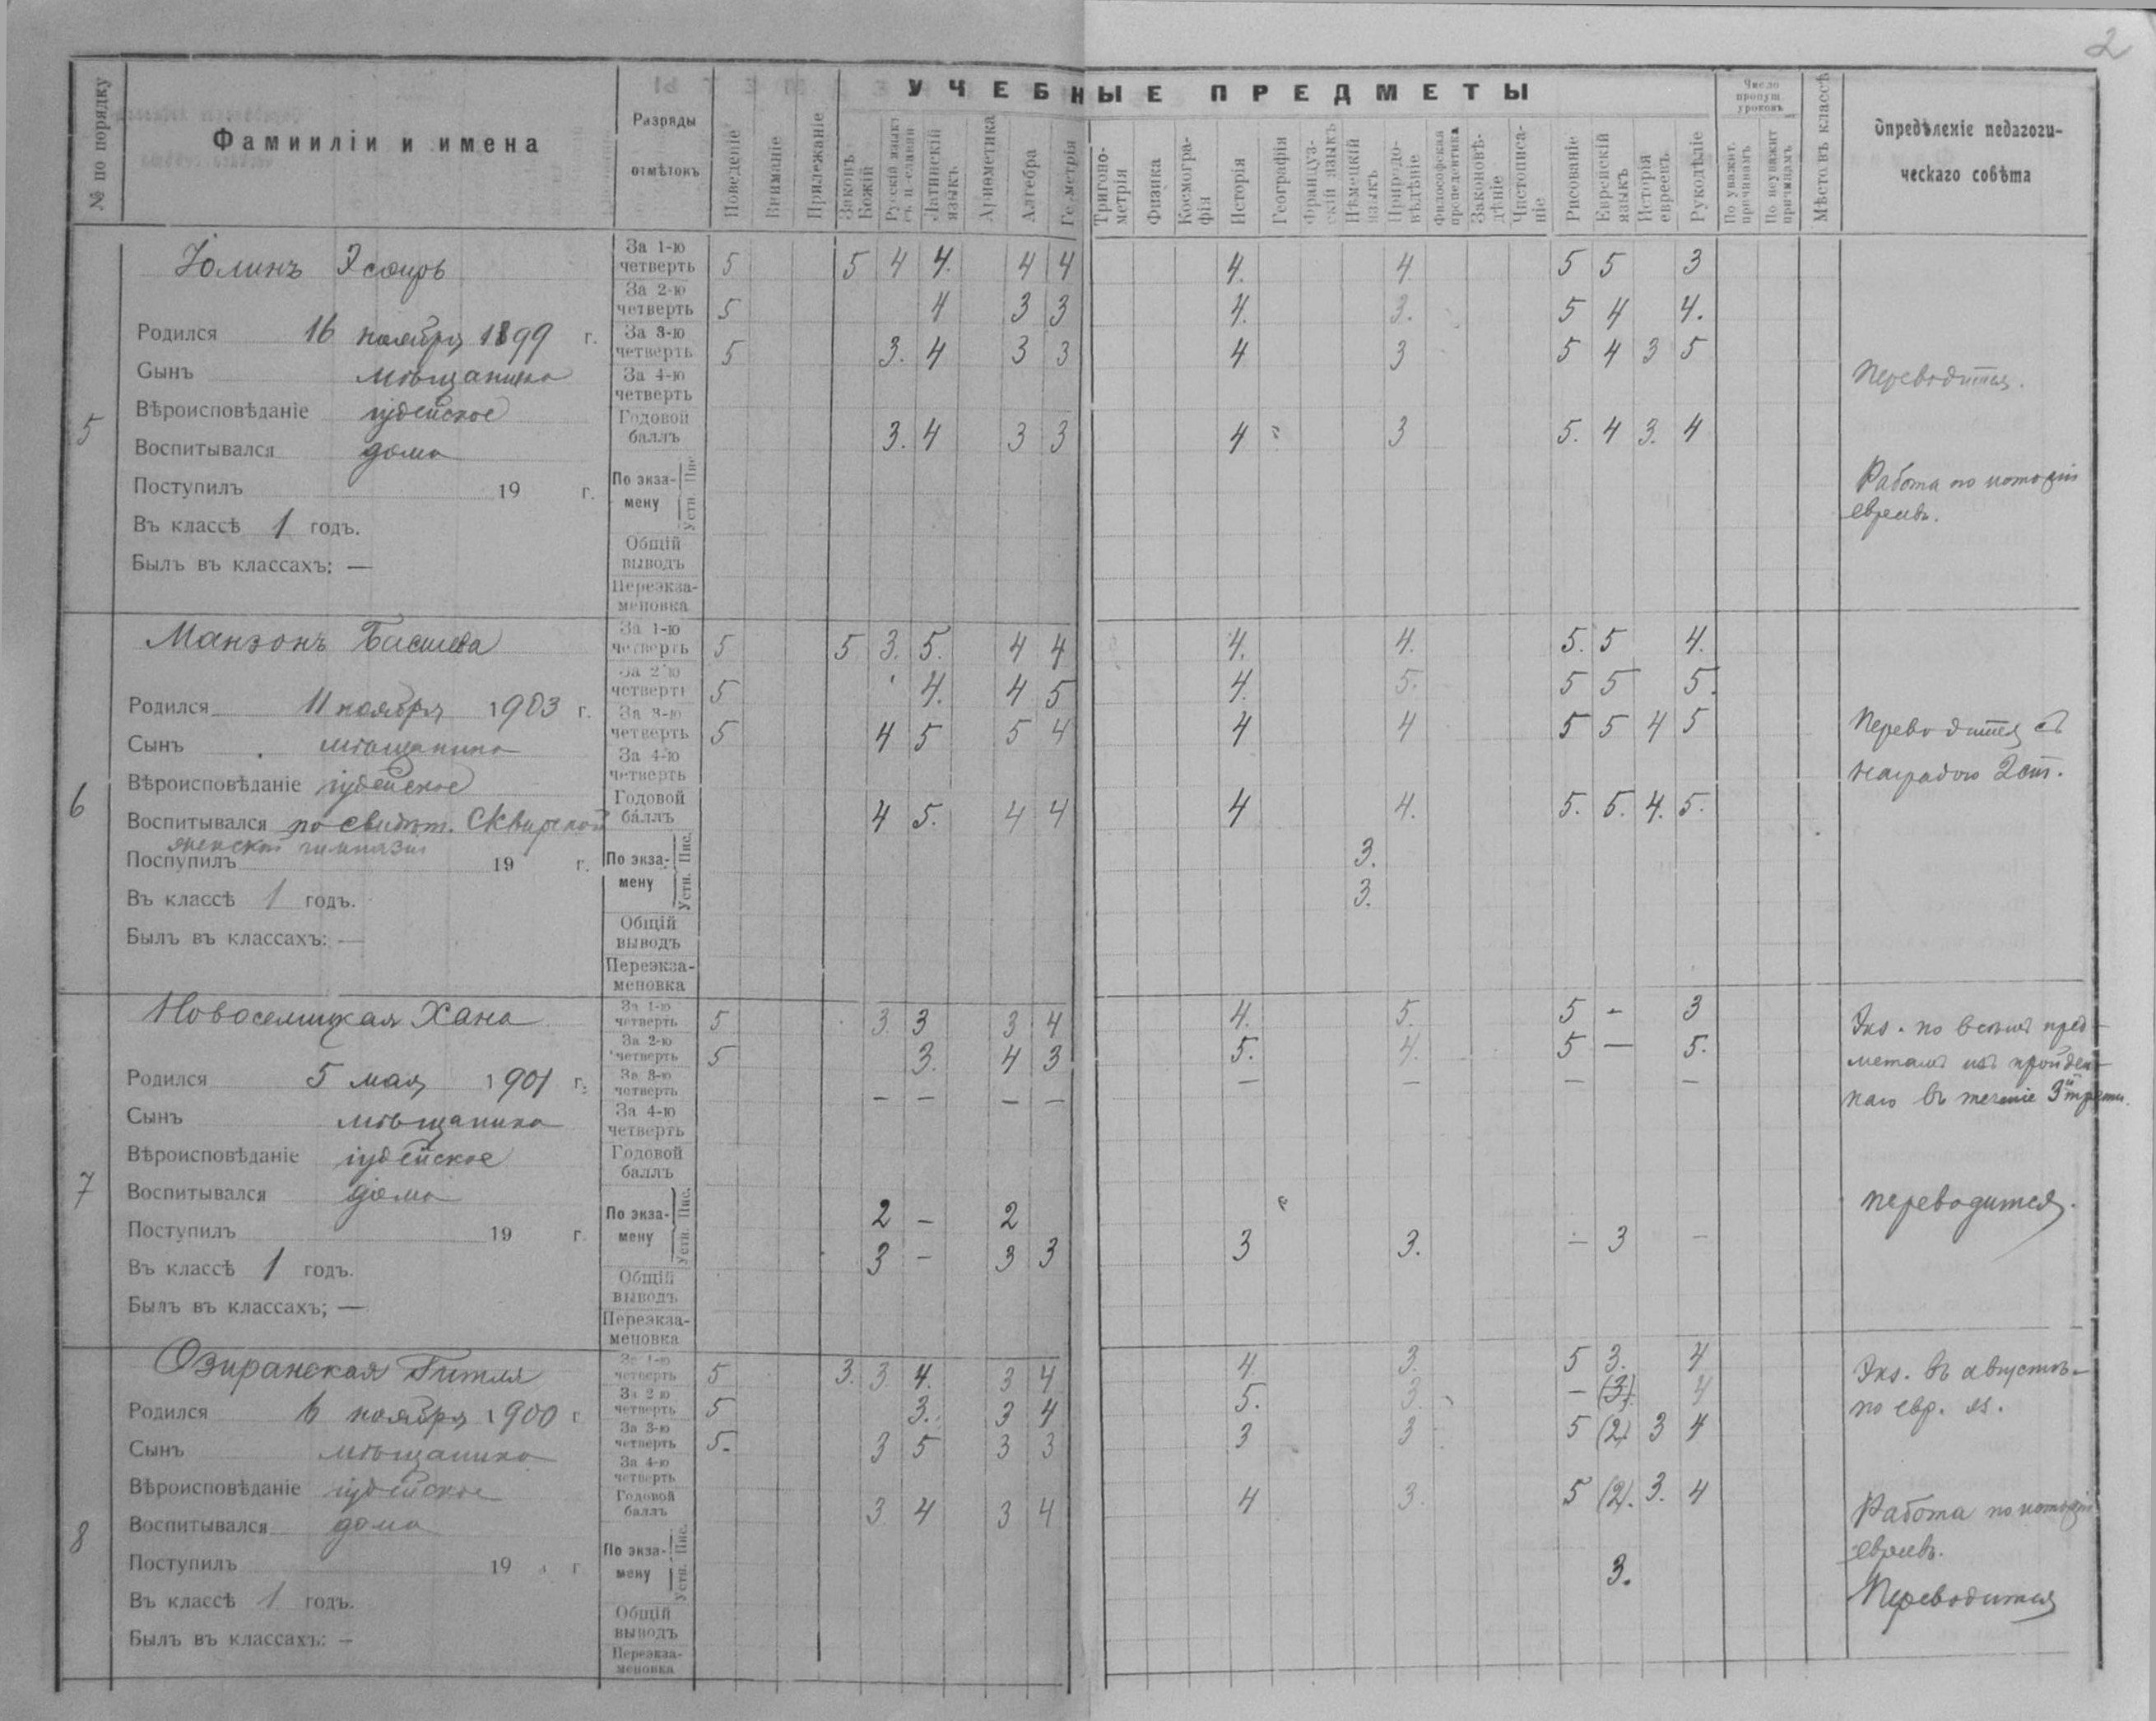 2
№ по порядку
Фамииліи и имена
Разряды
отмѣтокъ
УЧЕБНЫЕ ПРЕДМЕТЫ
Поведеніе
Вниманіе
Прилежаніе
Законъ Божій
Русскій языкъ
Латинскій языкъ
Ариѳметика
Алгебра
Геометрія
Тригоно-метрія
Физика
Космогра-фія
Исторія
География
Француз-скій языкъ
Нѣмецкій языкъ
Природо-вѣдѣніе
Философская пропедевтика
Законовѣ-дѣніе
Чистописа-ніе
Рисованіе
Еврейскій языкъ
Исторія евреевъ
Рукодѣліе
Число пропущ. уроковъ
По уважит. причинамъ
По неуважит. причинамъ
Мѣсто въ классѣ
Опредѣленіе педагоги-
ческаго совѣта
5
Іолинъ Эсѳирь
Родился 16 ноября 1899 г.
Сынъ мѣщанина
Вѣроисповѣданіе іудейское
Воспитывался дома
Поступилъ 19 г.
Въ классѣ 1 годъ.
Былъ въ классахъ: —
За 1-ю четверть 5 5 4 4. 4 4 4. 4 5 5 3
За 2-ю четверть 5 4 3 3 4. 3. 5 4 4.
За 3-ю четверть 5 3. 4 3 3 4 3 5 4 3 5
За 4-ю четверть
Годовой баллъ 3. 4 3 3 4 3 5. 4 3. 4
По экза-мену Пис. Устн.
Общій выводъ
Переэкза-меновка
Переводится.
Работа по исторіи
евреевъ.
6
Манзонъ Басшева
Родился 11 ноября 1903 г.
Сынъ мѣщанина
Вѣроисповѣданіе іудейское
Воспитывался по свидѣт. Сквирской
женской гимназіи
Поступилъ 19 г.
Въ классѣ 1 годъ.
Былъ въ классахъ: —
За 1-ю четверть 5 5 3. 5. 4 4 4. 4. 5. 5 4.
За 2-ю четверть 5 4. 4 5 4. 5. 5 5 5.
За 3-ю четверть 5 4 5 5 4 4 4 5 5 4 5
За 4-ю четверть
Годовой баллъ 4 5. 4 4 4 4. 5. 5. 4. 5.
По экза-мену Пис. 3.
Устн. 3.
Общій выводъ
Переэкза-меновка
Переводится съ
наградою 2 ст.
7
Новоселицкая Хана
Родился 5 мая 1901 г.
Сынъ мѣщанина
Вѣроисповѣданіе іудейское
Воспитывался дома
Поступилъ 19 г.
Въ классѣ 1 годъ.
Былъ въ классахъ; —
За 1-ю четверть 5 3 3 3 4 4. 5. 5 - 3
За 2-ю четверть 5 3. 4 3 5. 4. 5 — 5.
За 3-ю четверть — — — — — — — —
За 4-ю четверть
Годовой баллъ
По экза-мену Пис. 2 — 2
Устн. 3 — 3 3 3 3. — 3 —
Общій выводъ
Переэкза-меновка
Экз. по всѣмъ пред-
метамъ изъ пройден-
наго въ теченіе 3й трети.
переводится.
8
Озиранская Гитля
Родился 6 ноября 1900 г
Сынъ мѣщанина
Вѣроисповѣданіе іудейское
Воспитывался дома
Поступилъ 19 г
Въ классѣ 1 годъ.
Былъ въ классахъ: —
За 1-ю четверть 5 3. 3 4. 3 4 4. 3. 5 3. 4
За 2-ю четверть 5 3. 3 4 5. 3. — (3) 4
За 3-ю четверть 5. 3 5 3 3 3 3 5 (2) 3 4
За 4-ю четверть
Годовой баллъ 3 4 3 4 4 3. 5 (2). 3. 4
По экза-мену Пис. Устн. 3.
Общій выводъ
Переэкза-меновка
Экз. въ августѣ
по евр. яз.
Работа по исторіи
евреевъ.
Переводится